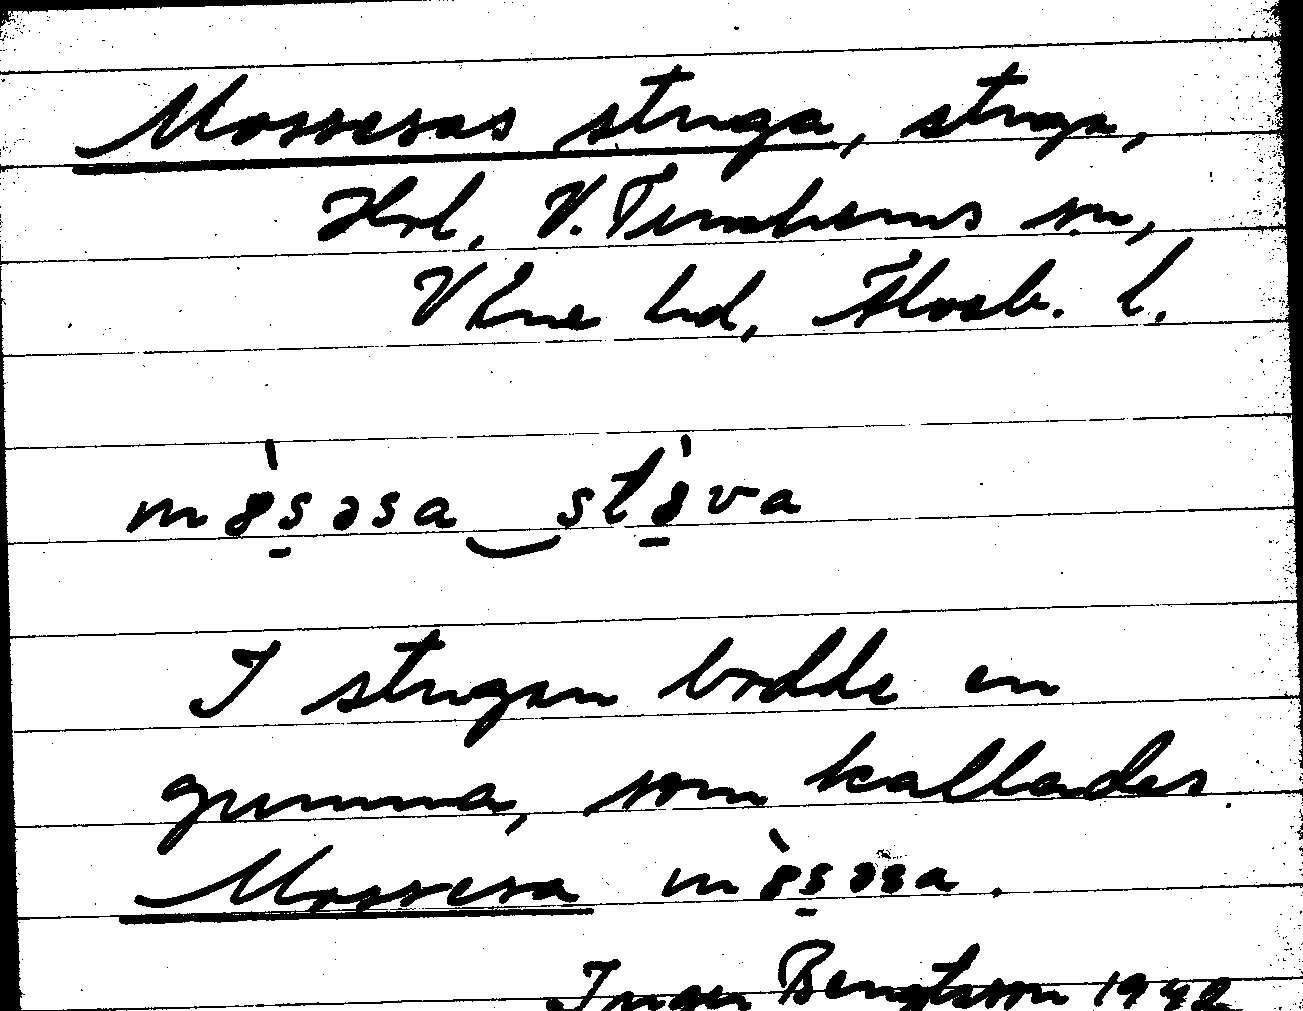 Mossesas stuga, stuga,
Hrl, V. Tunhems sn,
Väne hd, Älvsb. l.
I stugan bodde en
gumma, som kallades
Mossesa
Inger Bengtsson 1942